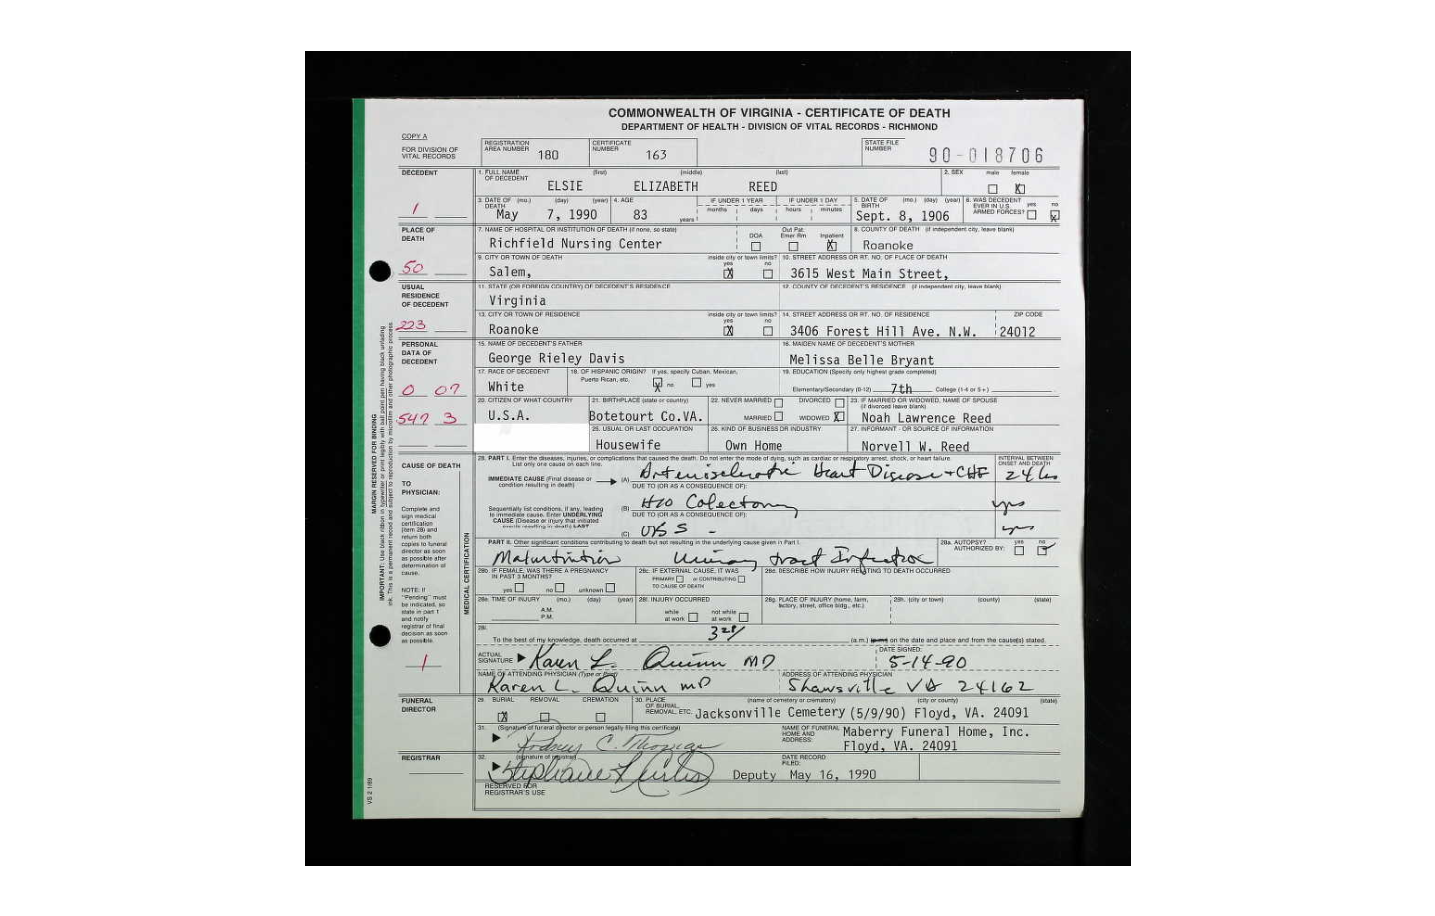 COMMONWEALTH OF VIRGINIA - CERTIFICATE OF DEATH
DEPARTMENT OF HEALTH - DIVISION OF VITAL RECORDS - RICHMOND
COPY A
FOR DIVISION OF VITAL RECORDS
REGISTRATION AREA NUMBER 180
CERTIFICATE NUMBER 163
STATE FILE NUMBER 90-018706
DECEDENT
1. FULL NAME OF DECEDENT (first) (middle) (last)
ELSIE ELIZABETH REED
2. SEX male female X
3. DATE OF DEATH (mo.) (day) (year) May 7, 1990
4. AGE 83 years
IF UNDER 1 YEAR months days
IF UNDER 1 DAY hours minutes
5. DATE OF BIRTH (mo.) (day) (year) Sept. 8, 1906
6. WAS DECEDENT EVER IN U.S. ARMED FORCES? yes no X
1
PLACE OF DEATH
7. NAME OF HOSPITAL OR INSTITUTION OF DEATH (if none, so state)
Richfield Nursing Center
DOA Out Pat. Emer Rm Inpatient X
8. COUNTY OF DEATH (if independent city, leave blank)
Roanoke
50
9. CITY OR TOWN OF DEATH
Salem,
inside city or town limits? yes X no
10. STREET ADDRESS OR RT. NO. OF PLACE OF DEATH
3615 West Main Street,
USUAL RESIDENCE OF DECEDENT
11. STATE (OR FOREIGN COUNTRY) OF DECEDENT'S RESIDENCE
Virginia
12. COUNTY OF DECEDENT'S RESIDENCE (if independent city, leave blank)
223
13. CITY OR TOWN OF RESIDENCE
Roanoke
inside city or town limits? yes X no
14. STREET ADDRESS OR RT. NO. OF RESIDENCE ZIP CODE
3406 Forest Hill Ave. N.W. 24012
PERSONAL DATA OF DECEDENT
15. NAME OF DECEDENT'S FATHER
George Rieley Davis
16. MAIDEN NAME OF DECEDENT'S MOTHER
Melissa Belle Bryant
17. RACE OF DECEDENT
White
18. OF HISPANIC ORIGIN? If yes, specify Cuban, Mexican, Puerto Rican, etc. X no yes
19. EDUCATION (Specify only highest grade completed)
Elementary/Secondary (0-12) 7th College (1-4 or 5+)
0 07
20. CITIZEN OF WHAT COUNTRY
U.S.A.
21. BIRTHPLACE (state or country)
Botetourt Co.VA.
22. NEVER MARRIED DIVORCED
MARRIED WIDOWED X
23. IF MARRIED OR WIDOWED, NAME OF SPOUSE (if divorced leave blank)
Noah Lawrence Reed
547 3
25. USUAL OR LAST OCCUPATION
Housewife
26. KIND OF BUSINESS OR INDUSTRY
Own Home
27. INFORMANT - OR SOURCE OF INFORMATION
Norvell W. Reed
CAUSE OF DEATH
TO PHYSICIAN:
Complete and sign medical certification (item 28) and return both copies to funeral director as soon as possible after determination of cause.
NOTE: If "Pending" must be indicated, so state in part 1 and notify registrar of final decision as soon as possible.
1
MEDICAL CERTIFICATION
28. PART I. Enter the diseases, injuries, or complications that caused the death. Do not enter the mode of dying, such as cardiac or respiratory arrest, shock, or heart failure.
List only one cause on each line.
INTERVAL BETWEEN ONSET AND DEATH
IMMEDIATE CAUSE (Final disease or condition resulting in death)
(A) Arteriosclerotic Heart Disease + CHF
DUE TO (OR AS A CONSEQUENCE OF):
Sequentially list conditions, if any, leading to immediate cause. Enter UNDERLYING CAUSE (Disease or injury that initiated events resulting in death) LAST
(B) H/O Colectomy yrs
DUE TO (OR AS A CONSEQUENCE OF):
(C) OBS - yrs
PART II. Other significant conditions contributing to death but not resulting in the underlying cause given in Part I.
Malnutrition Urinary tract Infection
28a. AUTOPSY? AUTHORIZED BY: yes no
28b. IF FEMALE, WAS THERE A PREGNANCY IN PAST 3 MONTHS? yes no unknown
28c. IF EXTERNAL CAUSE, IT WAS PRIMARY or CONTRIBUTING TO CAUSE OF DEATH
28d. DESCRIBE HOW INJURY RELATING TO DEATH OCCURRED
28e. TIME OF INJURY (mo.) (day) (year) A.M. P.M.
28f. INJURY OCCURRED while at work not while at work
28g. PLACE OF INJURY (home, farm, factory, street, office bldg., etc.)
28h. (city or town) (county) (state)
28i. To the best of my knowledge, death occurred at (a.m.) on the date and place and from the cause(s) stated.
ACTUAL SIGNATURE Karen L. Quinn MD
DATE SIGNED: 5-14-90
NAME OF ATTENDING PHYSICIAN (Type or Print)
Karen L. Quinn MD
ADDRESS OF ATTENDING PHYSICIAN
Shawsville VA 24162
FUNERAL DIRECTOR
29. BURIAL X REMOVAL CREMATION
30. PLACE OF BURIAL, REMOVAL, ETC. (name of cemetery or crematory) (city or county) (state)
Jacksonville Cemetery (5/9/90) Floyd, VA. 24091
31. (Signature of funeral director or person legally filing this certificate)
Rodney C. Thomas
NAME OF FUNERAL HOME AND ADDRESS:
Maberry Funeral Home, Inc.
Floyd, VA. 24091
REGISTRAR
32. (signature of registrar)
Stephanie L Curtis Deputy
DATE RECORD FILED:
May 16, 1990
RESERVED FOR REGISTRAR'S USE
VS 2 1/89
MARGIN RESERVED FOR BINDING
IMPORTANT: Use black ribbon in typewriter or print legibly with ball point pen having black unfading ink. This is a permanent record and subject to reproduction by microfilm and other photographic process.